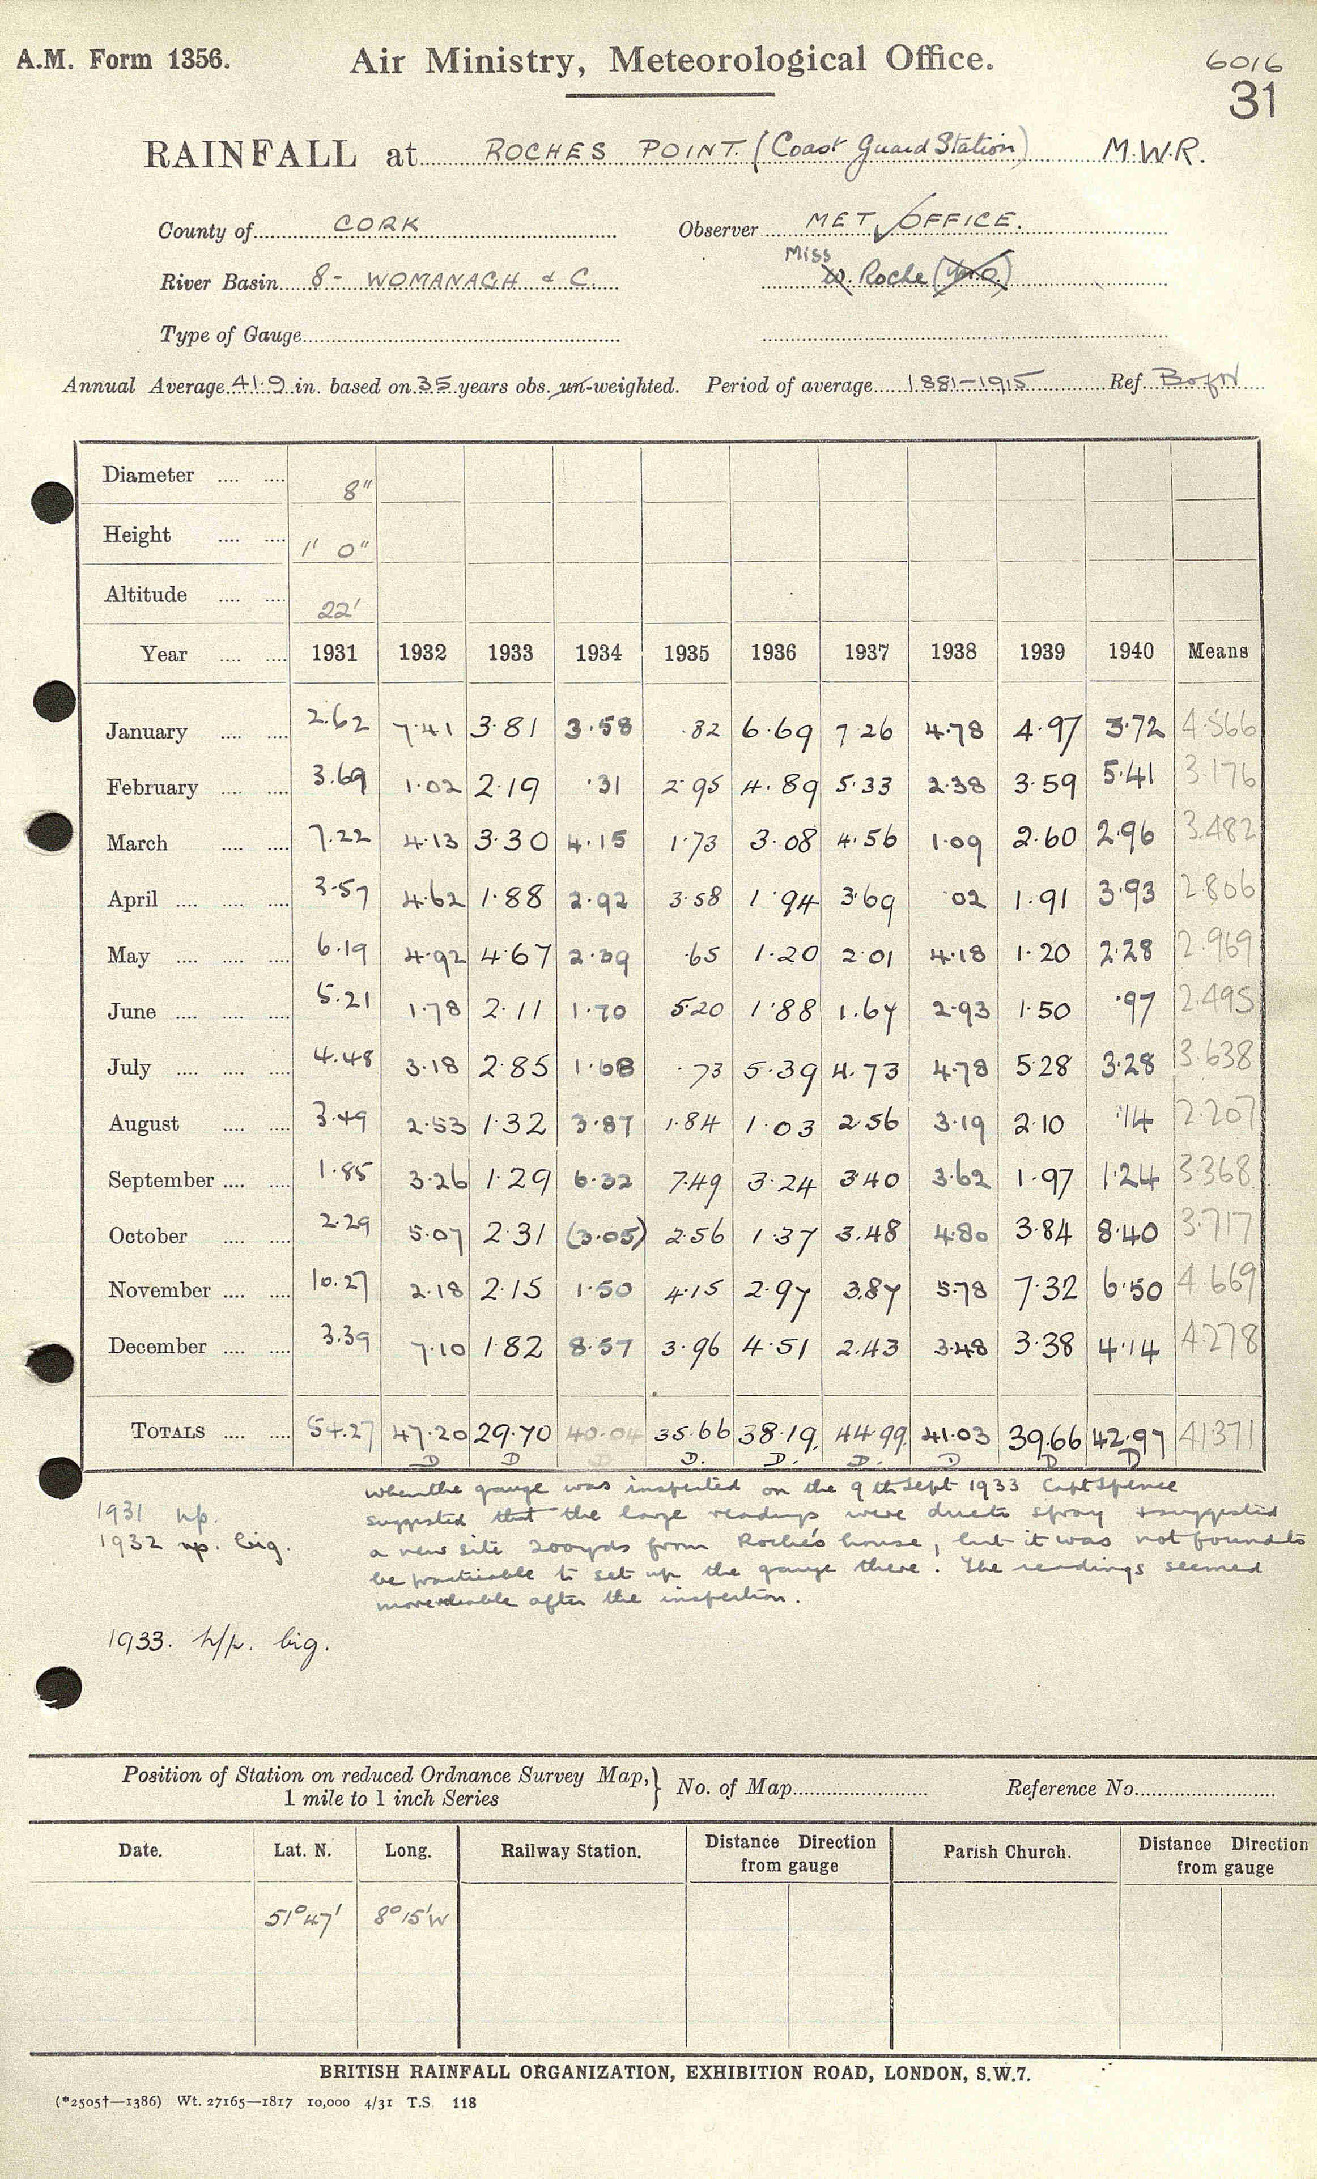 A.M. Form 1356. Air Ministry, Meteorological Office. 6016
31
RAINFALL at ROCHES POINT (Coast Guard Station) M.W.R.
County of CORK Observer MET OFFICE.
Miss
River Basin 8- WOMANAGH & C. W. Roche
Type of Gauge
Annual Average 41.9 in. based on 35 years obs. un-weighted. Period of average 1881-1915 Ref. BofW
Diameter .... .... 8"
Height .... .... 1' 0"
Altitude .... .... 22'
Year .... .... 1931 1932 1933 1934 1935 1936 1937 1938 1939 1940 Means
January .... .... 2.62 7.41 3.81 3.58 .82 6.69 7.26 4.78 4.97 3.72 4.566
February .... .... 3.69 1.02 2.19 .31 2.95 4.89 5.33 2.38 3.59 5.41 3.176
March .... .... 7.22 4.13 3.30 4.15 1.73 3.08 4.56 1.09 2.60 2.96 3.482
April .... .... .... 3.57 4.62 1.88 2.92 3.58 1.94 3.69 .02 1.91 3.93 2.806
May .... .... .... 6.19 4.92 4.67 2.39 .65 1.20 2.01 4.18 1.20 2.28 2.969
June .... .... .... 5.21 1.78 2.11 1.70 5.20 1.88 1.67 2.93 1.50 .97 2.495
July .... .... .... 4.48 3.18 2.85 1.68 .73 5.39 4.73 4.78 5.28 3.28 3.638
August .... .... 3.49 2.53 1.32 3.87 1.84 1.03 2.56 3.19 2.10 .14 2.207
September .... .... 1.85 3.26 1.29 6.32 7.49 3.24 3.40 3.62 1.97 1.24 3.368
October .... .... 2.29 5.07 2.31 (3.05) 2.56 1.37 3.48 4.80 3.84 8.40 3.717
November .... .... 10.27 2.18 2.15 1.50 4.15 2.97 3.87 5.78 7.32 6.50 4.669
December .... .... 3.39 7.10 1.82 8.57 3.96 4.51 2.43 3.48 3.38 4.14 4.278
TOTALS .... .... 54.27 47.20 29.70 40.04 35.66 38.19. 44.99. 41.03 39.66 42.97 41371
D D D D. D. D. D D D
When the gauge was inspected on the 9th Sept 1933 Capt Spence
1931 np. suggested that the large readings were due to spray & suggested
1932 np. big. a new site 200yds from Roche's house, but it was not found to
be practicable to set up the gauge there. The readings seemed
more reliable after the inspection.
1933. n/p. big.
Position of Station on reduced Ordnance Survey Map, } No. of Map Reference No.
1 mile to 1 inch Series
Date. Lat. N. Long. Railway Station. Distance Direction from gauge Parish Church. Distance Direction from gauge
51°47' 8°15'W
BRITISH RAINFALL ORGANIZATION, EXHIBITION ROAD, LONDON, S.W.7.
(*2505†—1386) Wt. 27165—1817 10,000 4/31 T.S. 118